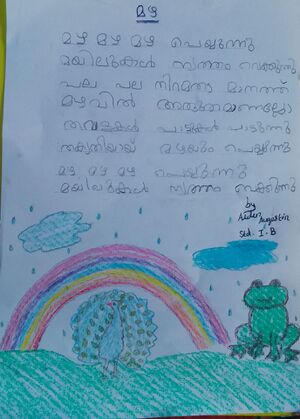 മഴ
മഴ മഴ മഴ പെയ്യുന്നു
മയിലുകൾ നൃത്തം വെക്കുന്നു
പല പല നിറമതാ മാനത്ത്
മഴവിൽ അഴകാണല്ലോ
തവളകൾ പാട്ടുകൾ പാടുന്നു
തകൃതിയായ് മഴയും പെയ്യുന്നു
മഴ മഴ മഴ പെയ്യുന്നു
മയിലുകൾ നൃത്തം വെക്കുന്നു
by
Augustin
Std. I.B